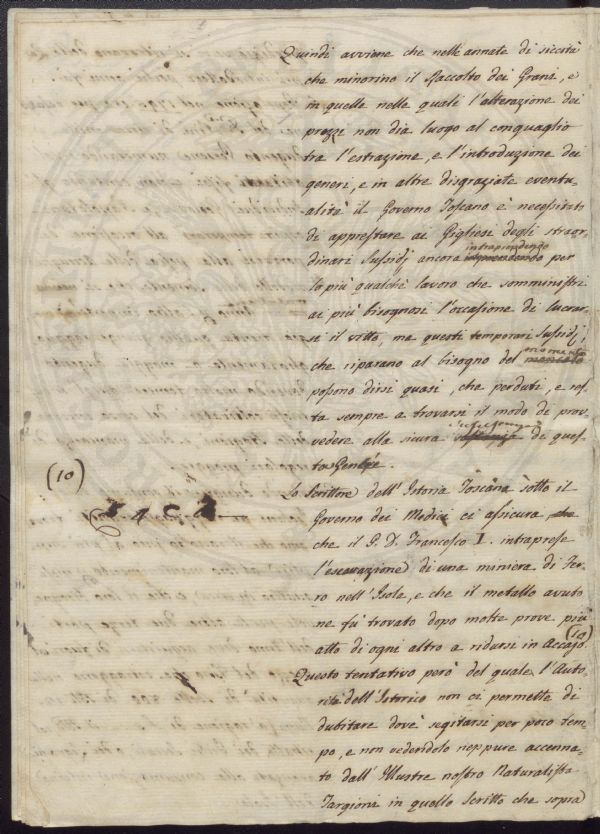 Quindi avviene che nelle annate di siccità
che minorino il Raccolto dei Grani, e
in quelle nelle quali l'alterazione dei
prezzi non dia luogo al conguaglio
tra l'estrazione, e l'introduzione dei
generi, e in altre disgraziate eventu-
alità il Governo Toscano è necessitato
di apprestare ai Gigliesi degli straor-
dinari Sussidj ancora intraprendendo per
lo più qualche lavoro che somministri
ai più bisognosi l'occasione di lucrar-
si il vitto, ma questi temporari Sussidj,
che riparano al bisogno del momento
possono dirsi quasi, che perduti, e res-
ta sempre a trovarsi il modo di prov-
vedere alla sicura sussistenza di ques-
te Gente.
(10)
Lo Scrittore dell'Istoria Toscana sotto il
Governo dei Medici ci assicura
che il G. D. Francesco I. intraprese
l'escavazione di una miniera di Fer-
ro nell'Isola, e che il metallo avuto
ne fù trovato dopo molte prove più
atto di ogni altro a ridursi in Acciajo. (10)
Questo tentativo però del quale l'Auto-
rità dell'Istorico non ci permette di
dubitare dovè segitarsi per poco tem-
po, e non vedendolo neppure accenna-
to dall'Illustre nostro Naturalista
Targioni in quello Scritto che sopra